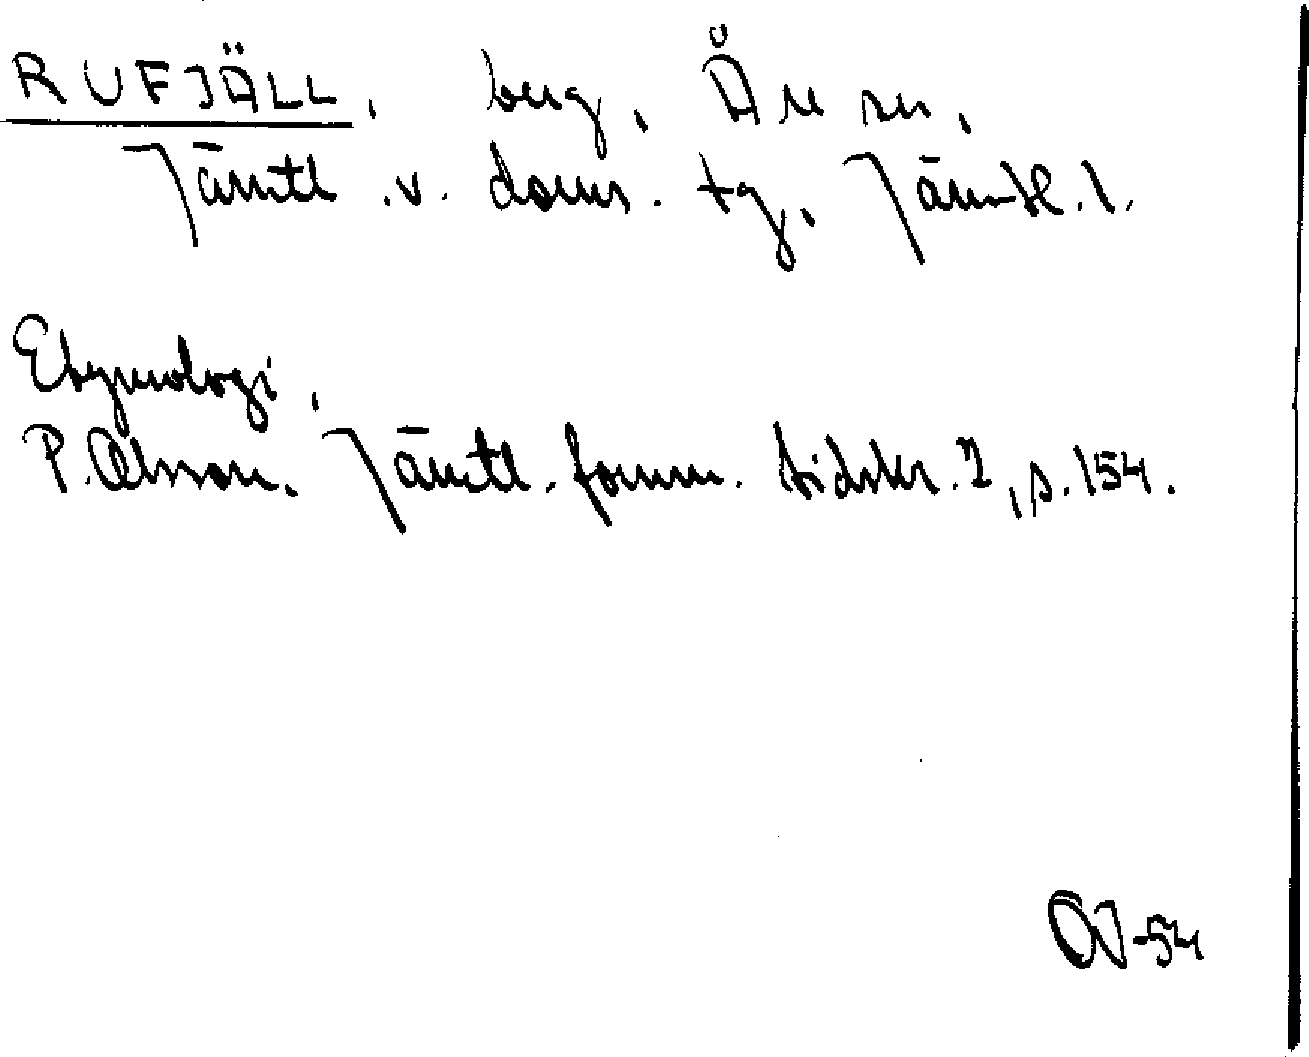 RUFJÄLL, berg, Åre sn,
Jämtl. v. doms. tg, Jämtl. l.
Etymologi,
P. Olsson. Jämtl. fornm. tidskr. 2, s. 154.
ÖJ-54